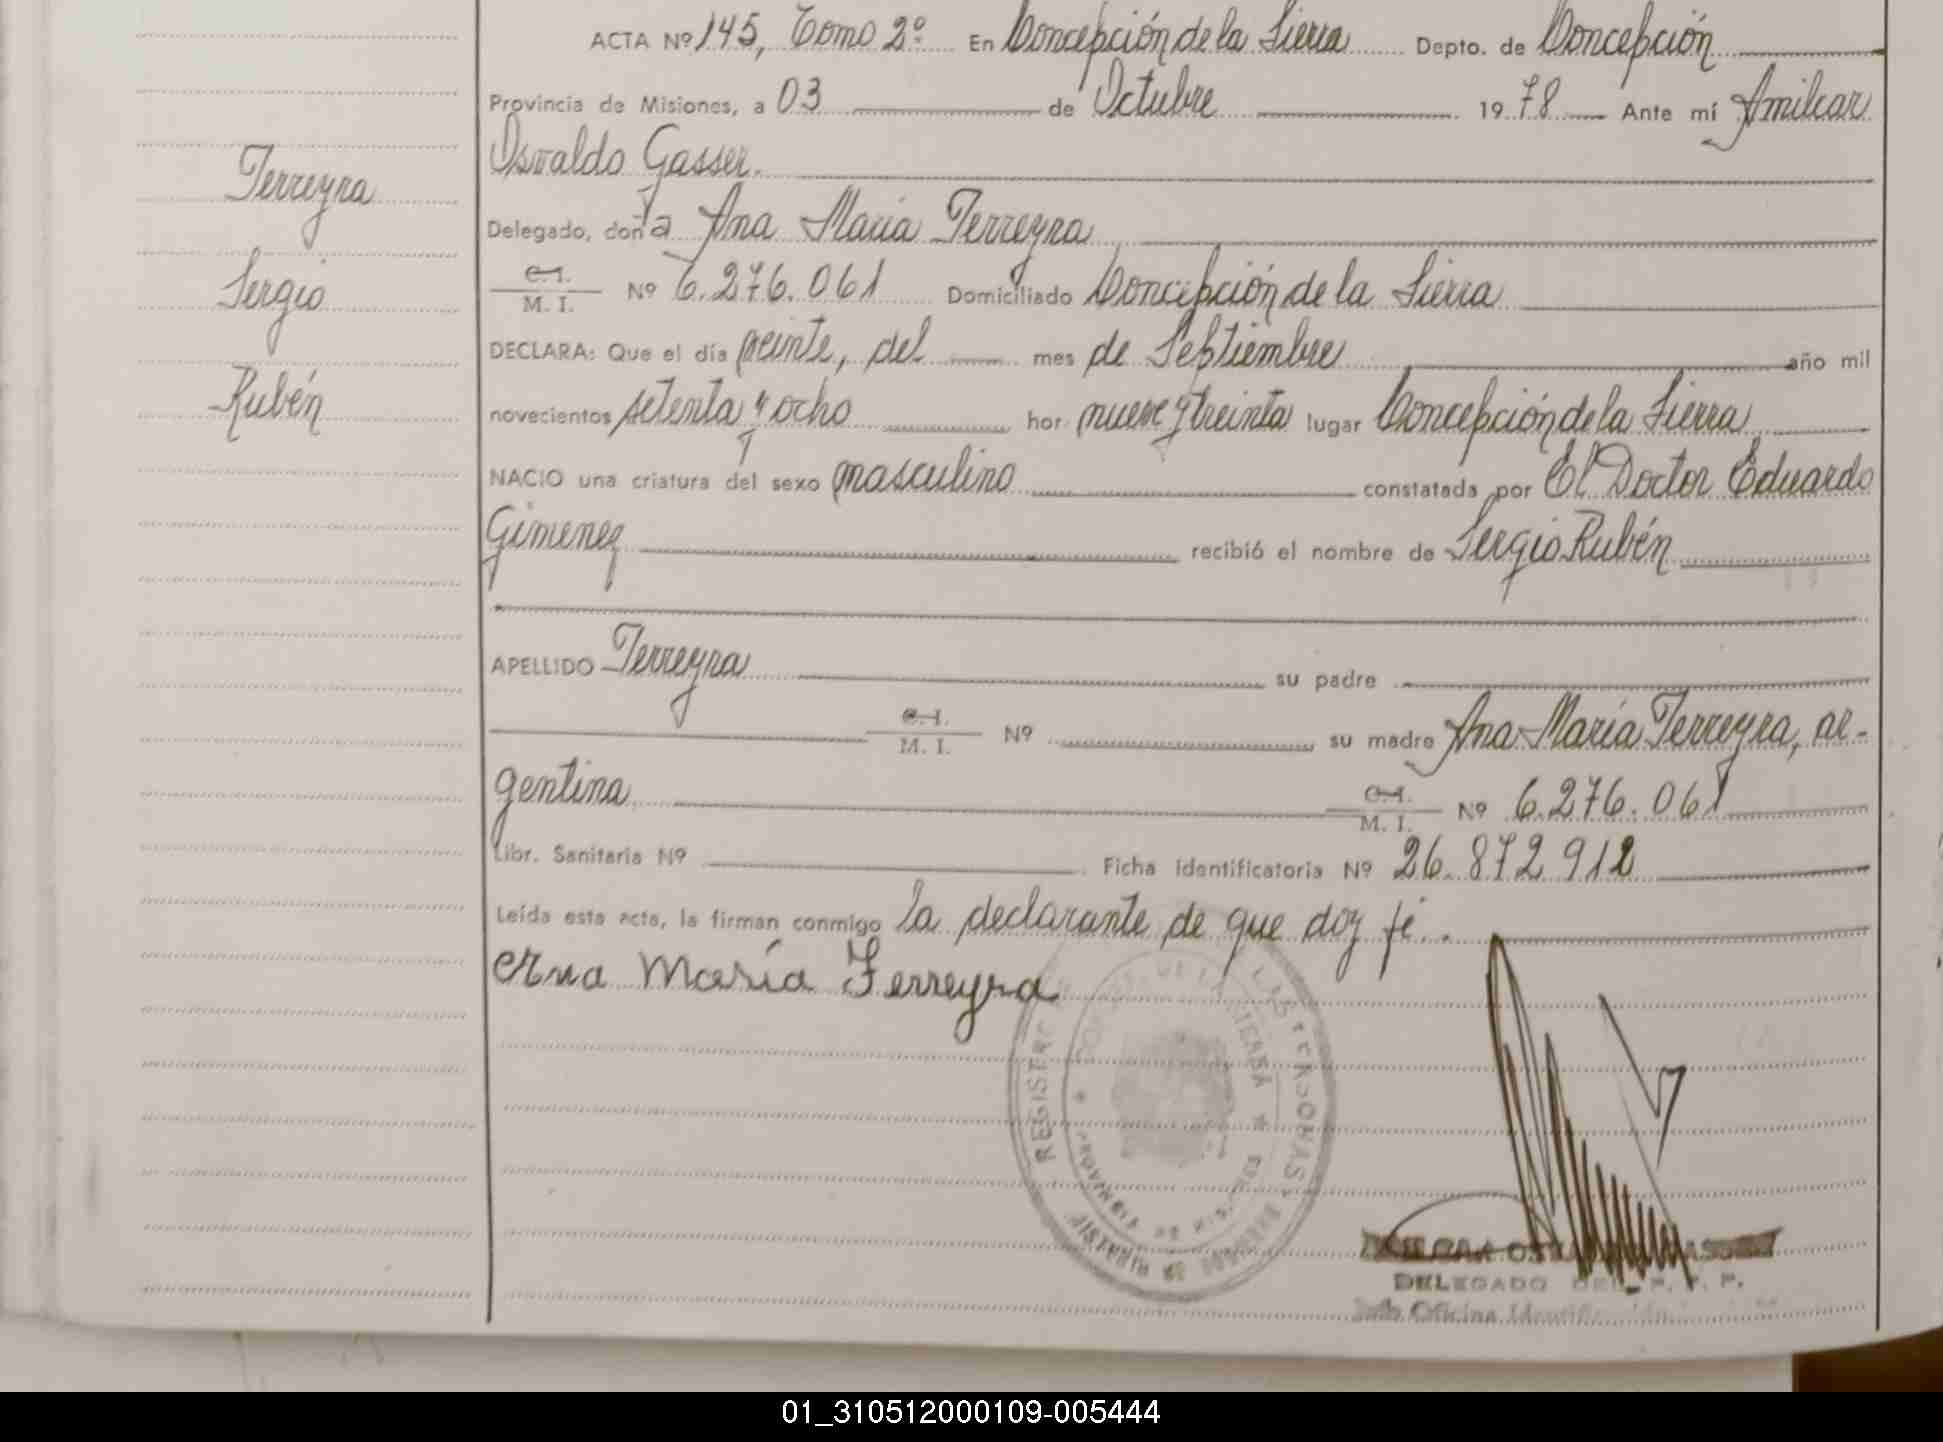 ACTA Nº 145, Tomo 2º En Concepción de la Sierra Depto. de Concepción
Provincia de Misiones, a 03 de Octubre 1978 Ante mí Amilcar
Osvaldo Gasser.
Delegado, doña Ana María Ferreyra
Ferreyra
C.I. / M. I. Nº 6.276.061 Domiciliado Concepción de la Sierra
Sergio
DECLARA: Que el día veinte, del mes de Septiembre año mil
Rubén
novecientos setenta y ocho hor. nueve y treinta lugar Concepción de la Sierra
NACIO una criatura del sexo masculino constatada por El Doctor Eduardo
Gimenez recibió el nombre de Sergio Rubén
APELLIDO Ferreyra su padre
C.I. / M. I. Nº su madre Ana María Ferreyra, ar-
gentina C.I. / M. I. Nº 6.276.061
Libr. Sanitaria Nº Ficha Identificatoria Nº 26.872.912
Leída esta acta, la firman conmigo la declarante de que doy fé.
Ana María Ferreyra
REGISTRO DE LAS PERSONAS
PROVINCIA DE MISIONES
DELEGADO DEL R. P. P.
Jefe Oficina
01_310512000109-005444